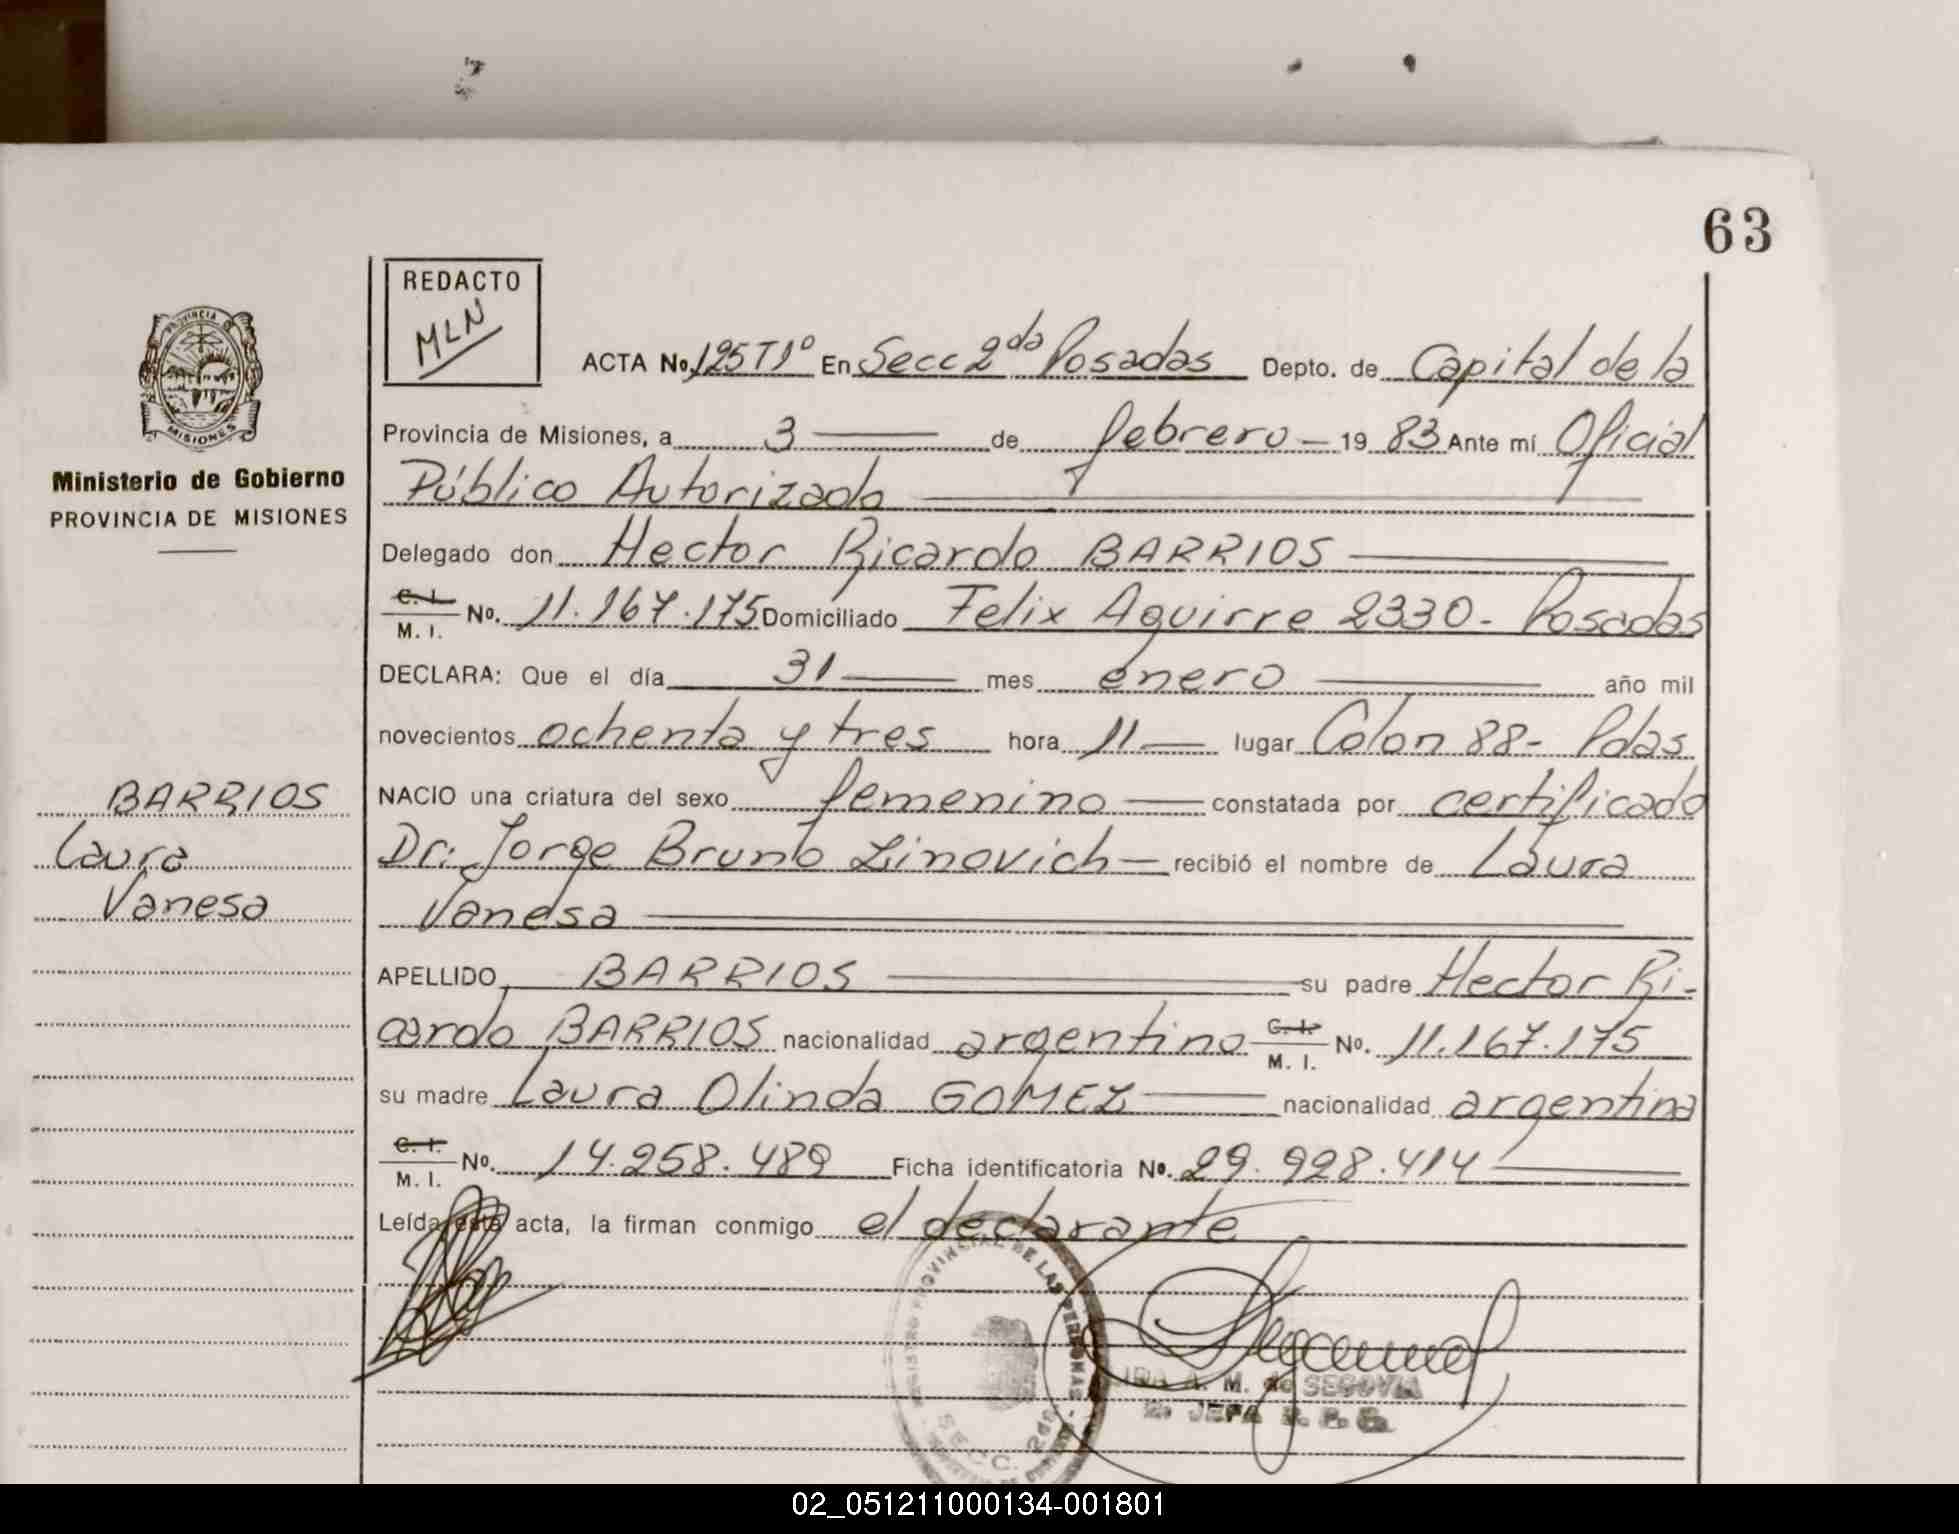 63
REDACTO
MLN
PROVINCIA DE
MISIONES
Ministerio de Gobierno
PROVINCIA DE MISIONES
ACTA No. 125 T1º En Secc 2da Posadas Depto. de Capital de la
Provincia de Misiones, a 3 de febrero 19 83 Ante mí Oficial
Público Autorizado
Delegado don Hector Ricardo BARRIOS
C. I. M. I. No. 11.167.175 Domiciliado Felix Aguirre 2330 - Posadas
DECLARA: Que el día 31 mes enero año mil
novecientos ochenta y tres hora 11 lugar Colon 88 - Pdas.
NACIO una criatura del sexo femenino constatada por certificado
Dr. Jorge Bruno Zinovich recibió el nombre de Laura
Vanesa
APELLIDO BARRIOS su padre Hector Ri-
cardo BARRIOS nacionalidad argentino C. I. M. I. No. 11.167.175
su madre Laura Olinda GOMEZ nacionalidad argentina
C. I. M. I. No. 14.258.489 Ficha identificatoria No. 29.928.414
Leída esta acta, la firman conmigo el declarante
BARRIOS
Laura
Vanesa
REGISTRO PROVINCIAL DE LAS PERSONAS
SECC. 2da
A. M. de SEGOVIA
JEFA
02_051211000134-001801